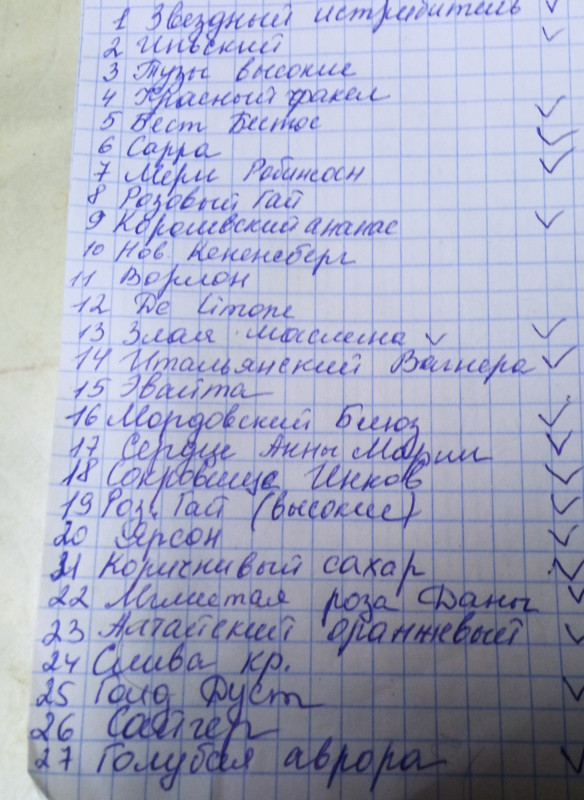 1 Звездный истребитель ✓
2 Ильский ✓
3 Тузы высокие
4 Красный факел
5 Бест Бестос ✓
6 Сарра ✓
7 Мери Робинсон ✓
8 Розовый Гай
9 Королевский ананас ✓
10 Нов. Кененсберг
11 Вормон
12 De Limone
13 Злая маслина ✓ ✓
14 Итальянский Вагнера ✓
15 Эвайта
16 Мордовский Блюз ✓
17 Сердце Анны Марии ✓
18 Сокровища Инков ✓
19 Роз. Гай (высокие) ✓
20 Ярсон ✓
21 Коричнивый сахар ✓
22 Мглистая роза Даны ✓
23 Алтайский оранжевый ✓
24 Слива кр.
25 Голд Дуст ✓
26
27 Голубая аврора ✓